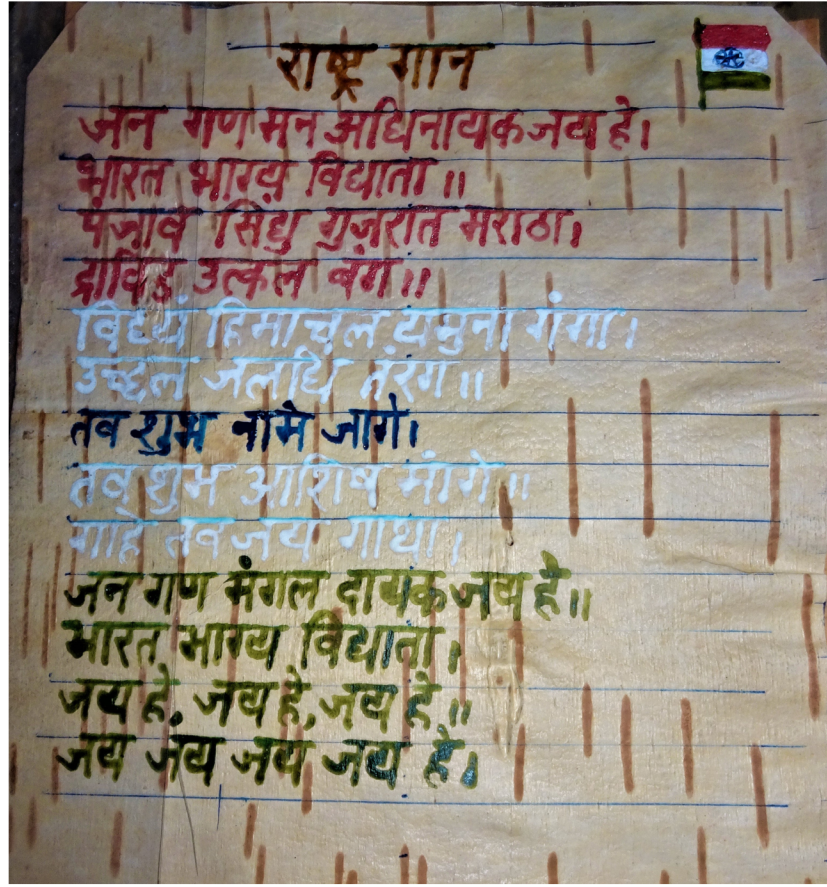 राष्ट्र गान
जन गण मन अधिनायक जय हे।
भारत भाग्य विधाता॥
पंजाब सिंधु गुजरात मराठा।
द्राविड़ उत्कल बंग॥
विंध्य हिमाचल यमुना गंगा।
उच्छल जलधि तंरग॥
तव शुभ नामे जागे।
तव् शुभ आशिष मांगे॥
गाहे तव जय गाथा।
जन गण मंगल दायक जय हे॥
भारत भाग्य विधाता।
जय हे, जय हे, जय हे॥
जय जय जय जय हे।